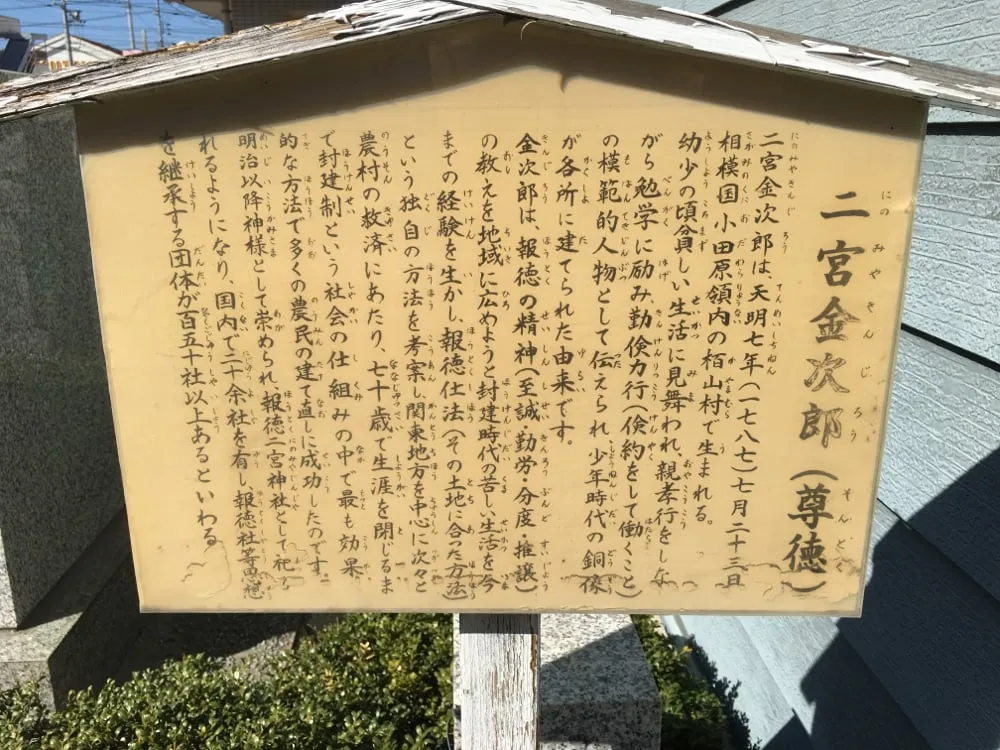 二宮金次郎(尊徳)
二宮金次郎は、天明七年(一七八七)七月二十三日
相模国小田原領内の栢山村で生まれる。
幼少の頃貧しい生活に見舞われ、親孝行をしな
がら勉学に励み、勤倹力行(倹約をして働くこと)
の模範的人物として伝えられ、少年時代の銅像
が各所に建てられた由来です。
金次郎は、報徳の精神(至誠・勤労・分度・推譲)
の教えを地域に広めようと封建時代の苦しい生活を今
までの経験を生かし、報徳仕法(その土地に合った方法)
という独自の方法を考案し、関東地方を中心に次々と
農村の救済にあたり、七十歳で生涯を閉じるま
で封建制という社会の仕組みの中で最も効果
的な方法で多くの農民の建て直しに成功したのです。
明治以降神様として崇められ、報徳二宮神社として祀ら
れるようになり、国内で二十余社を有し、報徳社等思想
を継承する団体が百五十社以上あるといわる